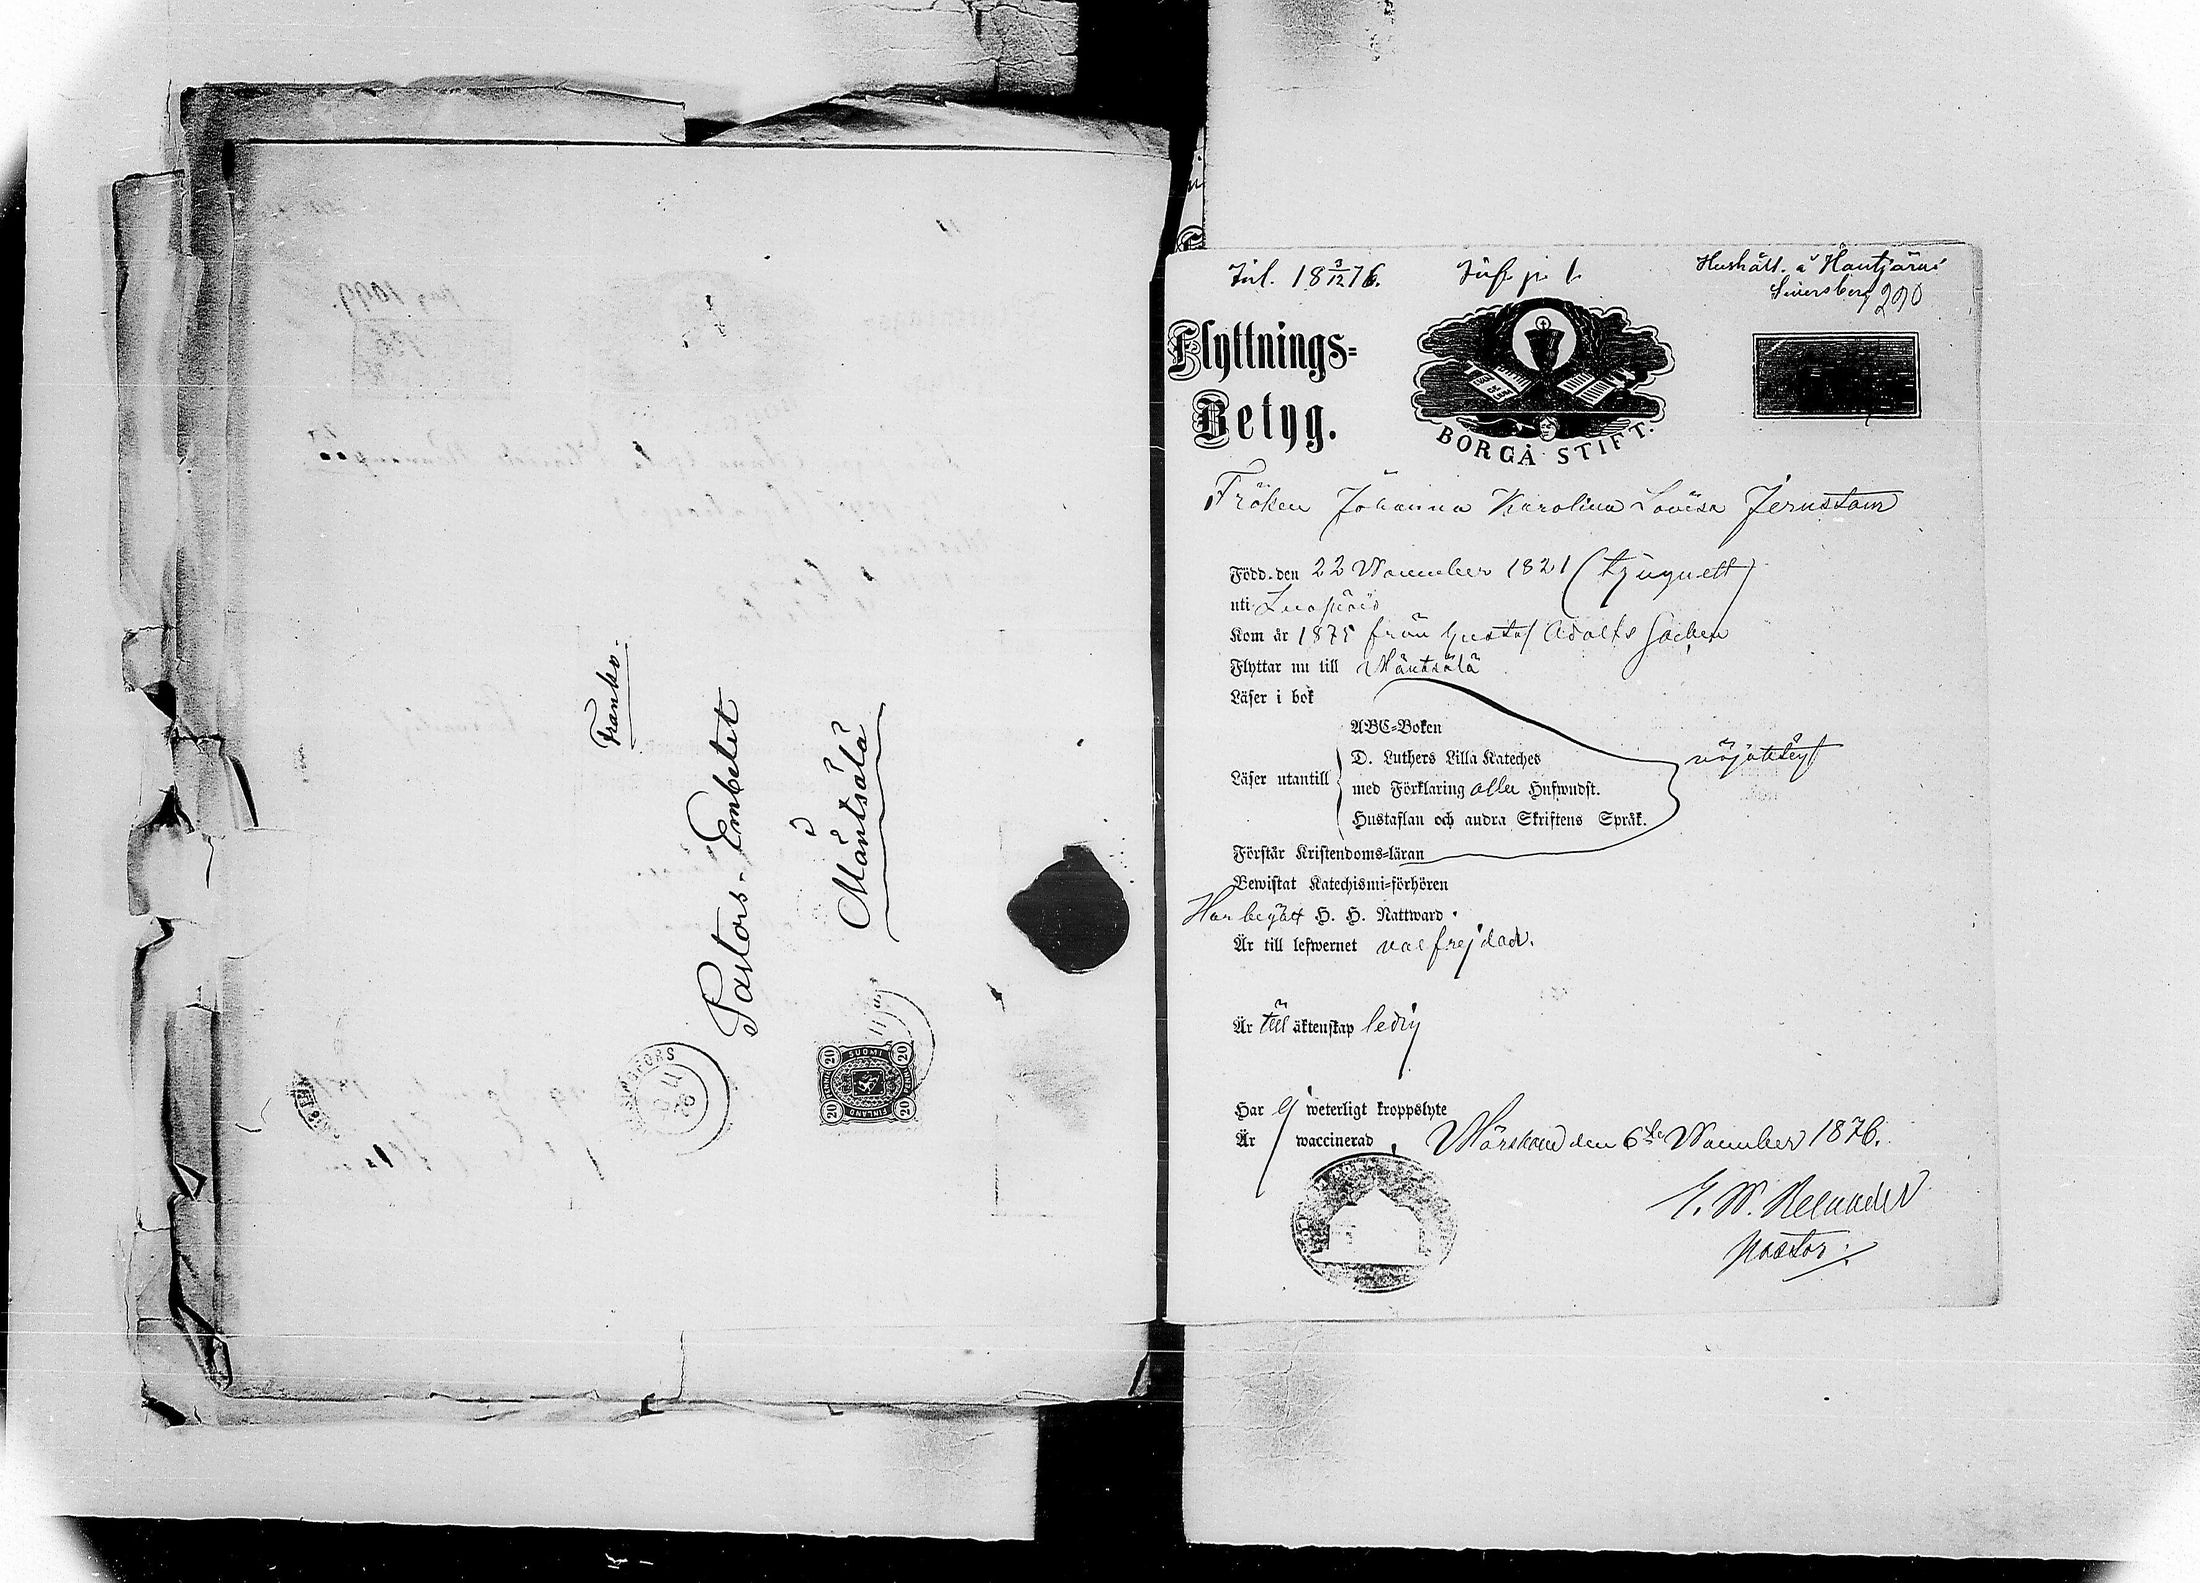 Franko.
Pastors-Embetet
i
Mäntsälä
SUOMI
20 20
FINLAND
20 20
Inl. 18 3/12 76.
Hushåll. å
290
Flyttnings=
Betyg.
BORGÅ STIFT.
Fröken Johanna Karolina Lovisa Jernstam
Född den 22 November 1821 (tjuguett)
uti
Kom år 1875 från Gustaf Adolfs socken
Flyttar nu till Mäntsälä
Läser i bok
ABC=Boken
D. Luthers Lilla Kateches
Läser utantill
med Förklaring eller Hufwudst.
nöjaktigt
Hustaflan och andra Skriftens Språk.
Förstår Kristendoms=läran
Bewistat Katechismi=förhören
Har begått H. H. Nattward.
Är till lefwernet välfrejdad.
Är till äktenskap ledig
Har ej weterligt kroppslyte
Är waccinerad, Mörskom den 6te November 1876.
Pastor.